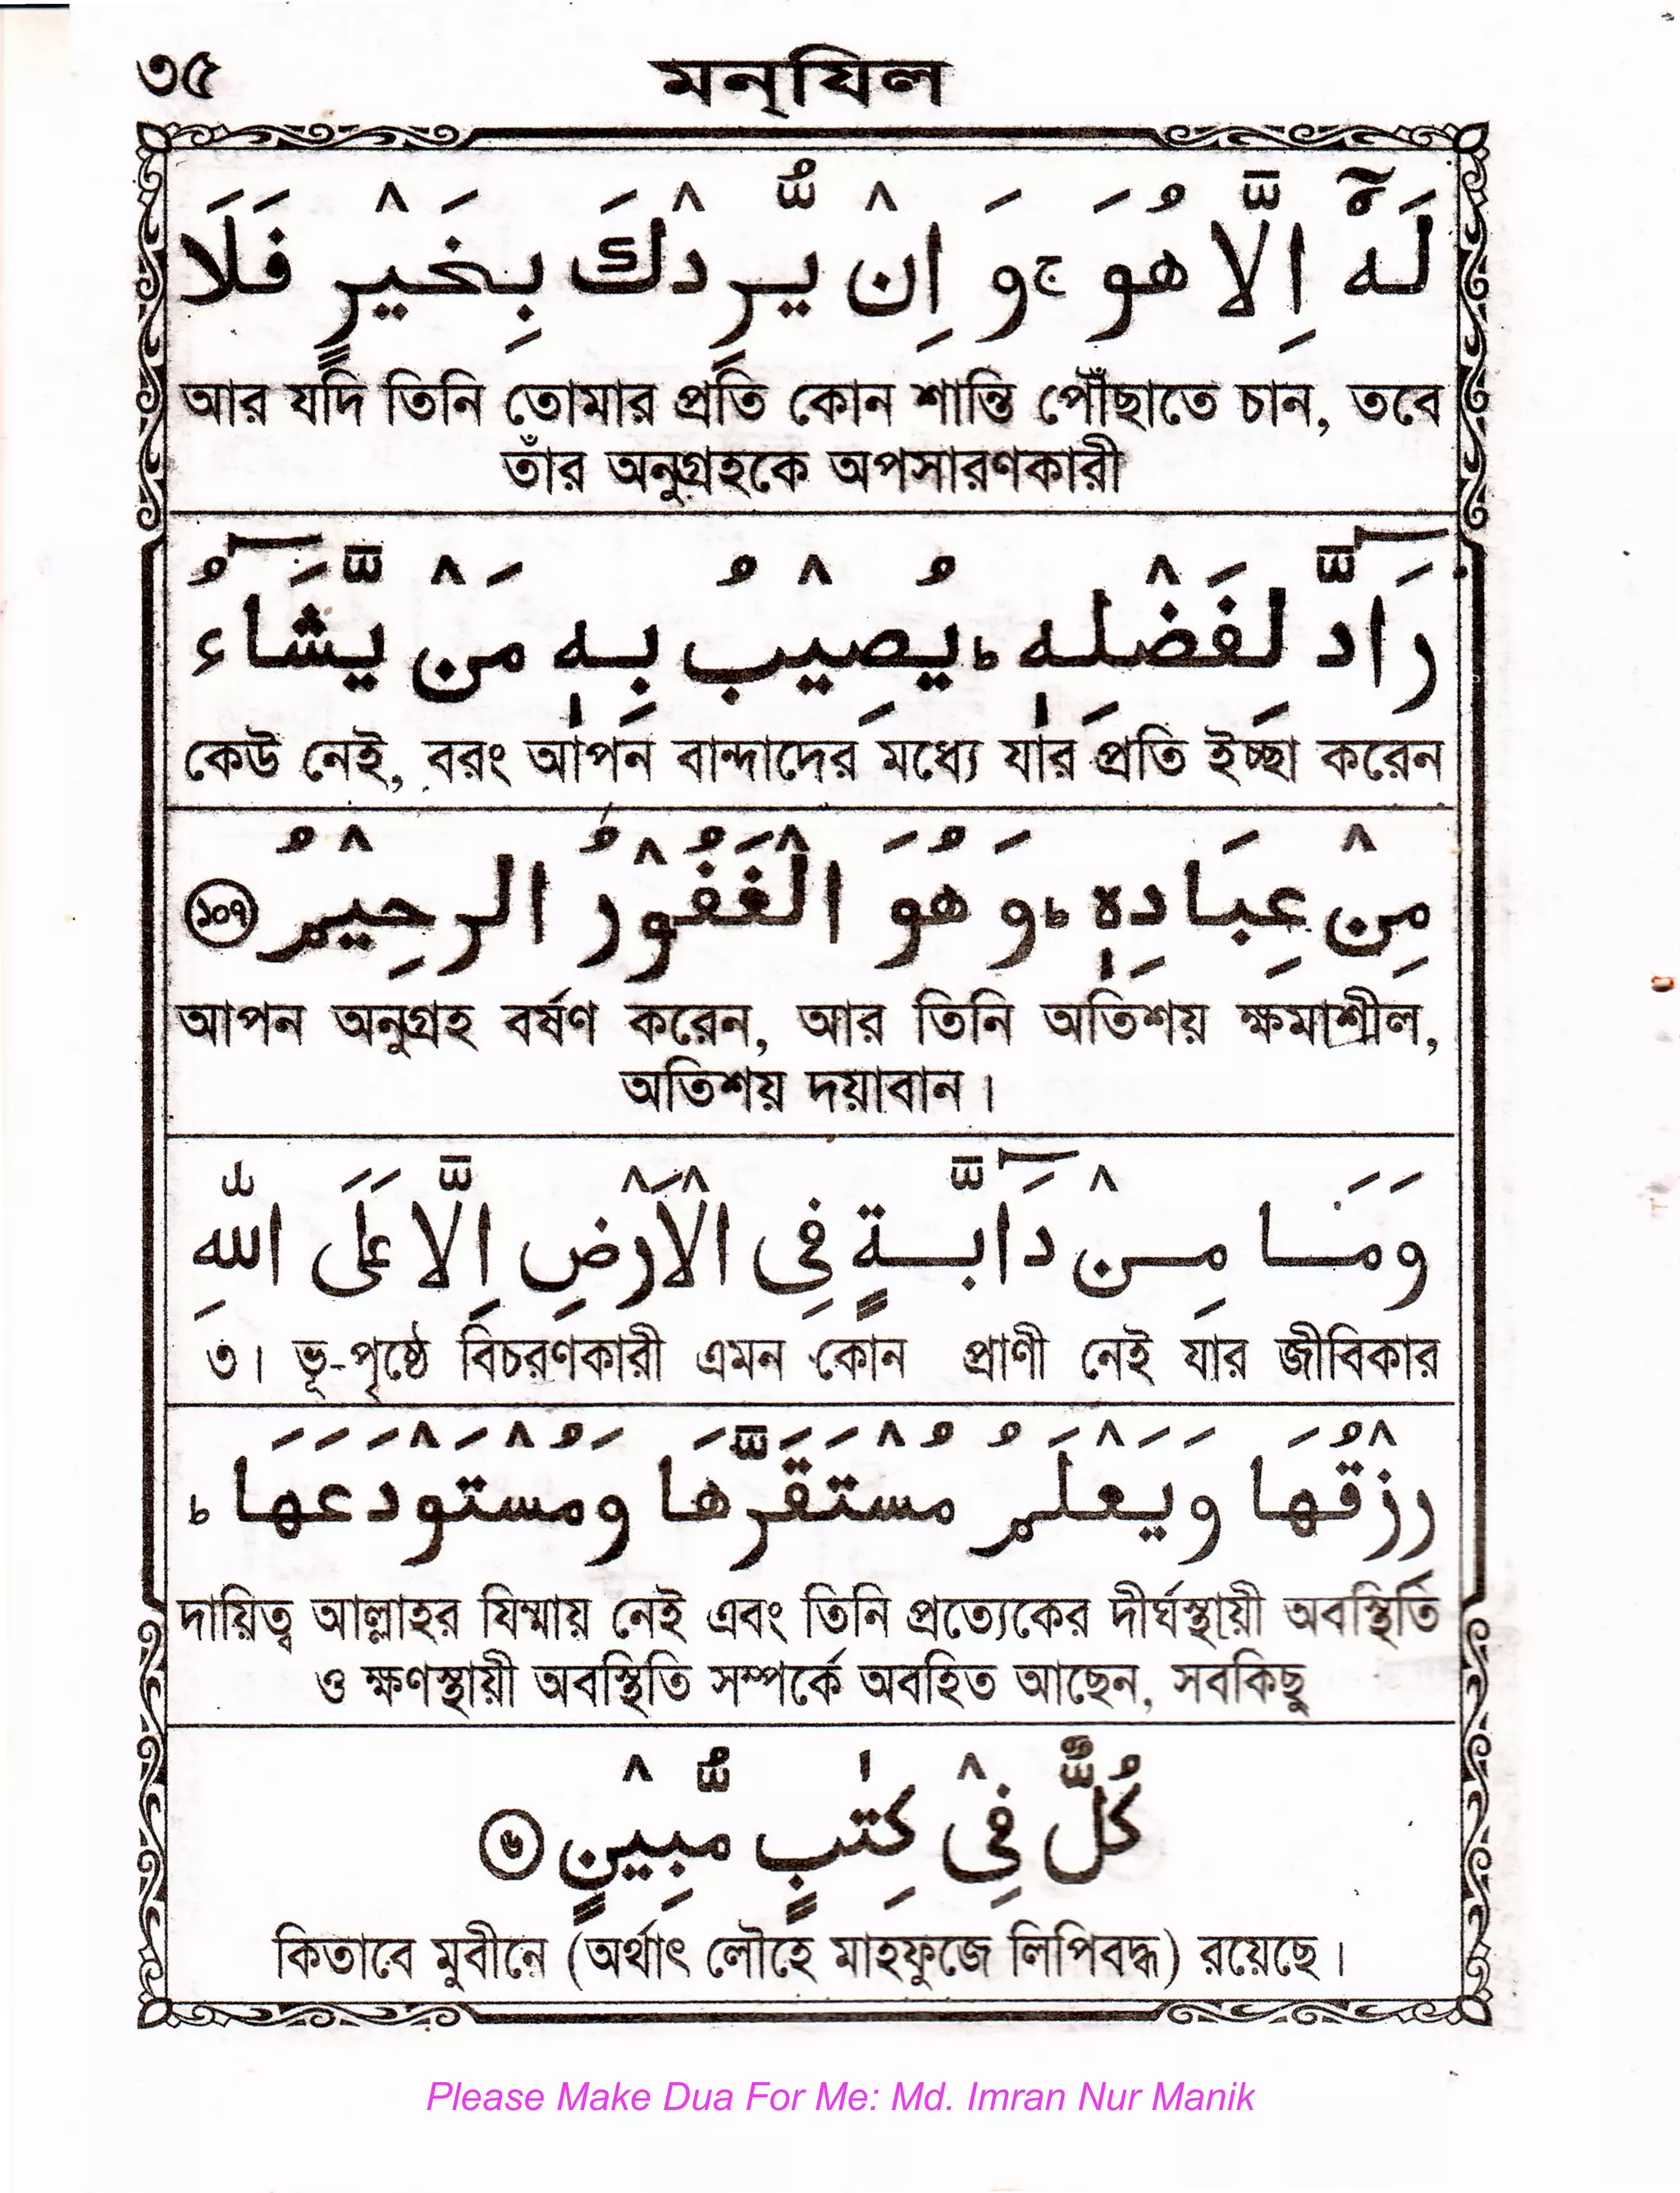 ৩৫
মন্‌যিল
لَهٗٓ اِلَّا هُوَ ج وَ اِنْ يُّرِدْكَ بِخَيْرٍ فَلَا
আর যদি তিনি তোমার প্রতি কোন শান্তি পৌঁছাতে চান, তবে
তাঁর অনুগ্রহকে অপসারণকারী
رَآدَّ لِفَضْلِهٖ ط يُصِيْبُ بِهٖ مَنْ يَّشَآءُ
কেউ নেই, বরং আপন বান্দাদের মধ্যে যার প্রতি ইচ্ছা করেন
مِنْ عِبَادِهٖ ط وَ هُوَ الْغَفُوْرُ الرحِيْمُ ১০৭
আপন অনুগ্রহ বর্ষণ করেন, আর তিনি অতিশয় ক্ষমাশীল,
অতিশয় দয়াবান।
وَمَا مِنْ دَآبَّةٍ فِى الْاَرْضِ اِلَّا عَلَى اللّٰهِ
৩। ভূ-পৃষ্ঠে বিচরণকারী এমন কোন প্রাণী নেই যার জীবিকার
رِزْقُهَا وَيَعْلَمُ مُسْتَقَرَّهَا وَمُسْتَوْدَعَهَا ط
দায়িত্ব আল্লাহর যিম্মায় নেই এবং তিনি প্রত্যেকের দীর্ঘস্থায়ী অবস্থিতি
ও ক্ষণস্থায়ী অবস্থিতি সম্পর্কে অবহিত আছেন, সবকিছু
كُلٌّ فِىْ كِتٰبٍ مُّبِيْنٍ ৬
কিতাবে মুবীনে (অর্থাৎ লৌহে মাহফুজে লিপিবদ্ধ) রয়েছে।
Please Make Dua For Me: Md. Imran Nur Manik